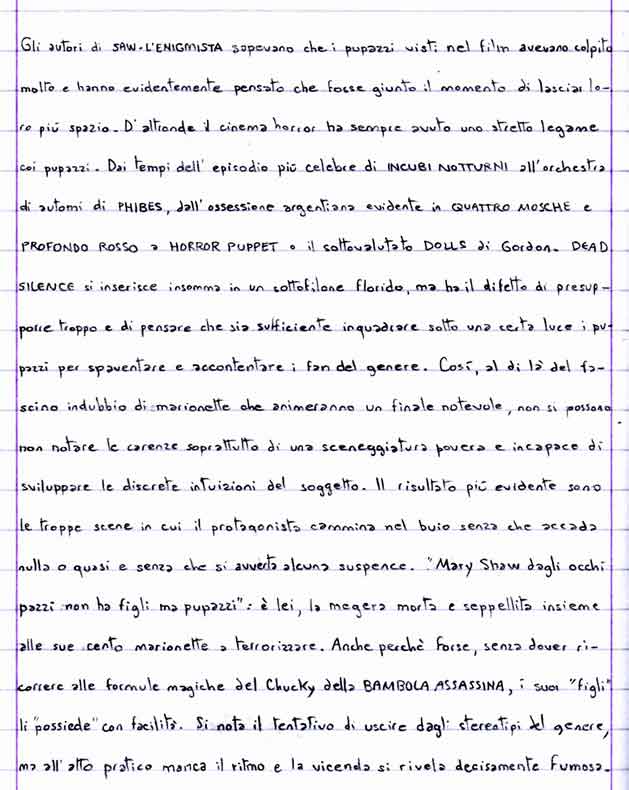 Gli autori di SAW-L'ENIGMISTA sapevano che i pupazzi visti nel film avevano colpito
molto e hanno evidentemente pensato che fosse giunto il momento di lasciar lo-
ro più spazio. D'altronde il cinema horror ha sempre avuto uno stretto legame
coi pupazzi. Dai tempi dell'episodio più celebre di INCUBI NOTTURNI all'orchestra
di automi di PHIBES, dall'ossessione argentiana evidente in QUATTRO MOSCHE e
PROFONDO ROSSO a HORROR PUPPET o il sottovalutato DOLLS di Gordon. DEAD
SILENCE si inserisce insomma in un sottofilone florido, ma ha il difetto di presup-
porre troppo e di pensare che sia sufficiente inquadrare sotto una certa luce i pu-
pazzi per spaventare e accontentare i fan del genere. Così, al di là del fa-
scino indubbio di marionette che animeranno un finale notevole, non si possono
non notare le carenze soprattutto di una sceneggiatura povera e incapace di
sviluppare le discrete intuizioni del soggetto. Il risultato più evidente sono
le troppe scene in cui il protagonista cammina nel buio senza che accada
nulla o quasi e senza che si avverta alcuna suspence. "Mary Shaw dagli occhi
pazzi non ha figli ma pupazzi": è lei, la megera morta e seppellita insieme
alle sue cento marionette a terrorizzare. Anche perchè forse, senza dover ri-
correre alle formule magiche del Chucky della BAMBOLA ASSASSINA, i suoi "figli"
li "possiede" con facilità. Si nota il tentativo di uscire dagli stereotipi del genere,
ma all'atto pratico manca il ritmo e la vicenda si rivela decisamente fumosa.